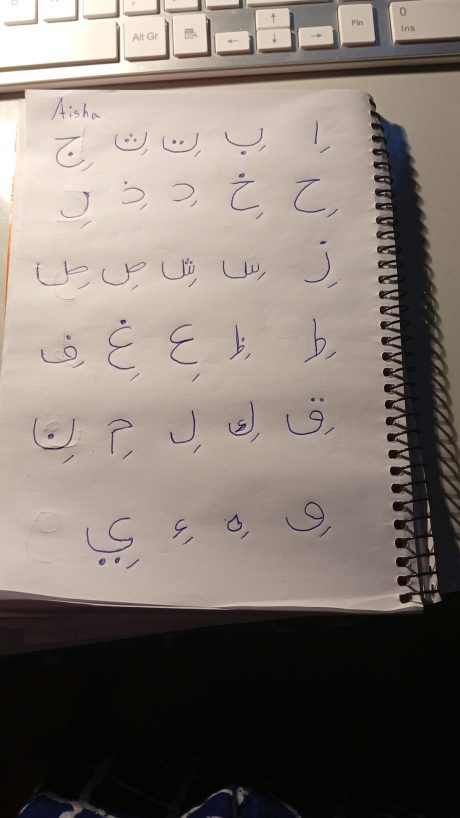 Alt Gr
Fin
0
Ins
Aisha
اِ بِ تِ ثِ جِ
حِ خِ دِ ذِ رِ
زِ سِ شِ صِ ضِ
طِ ظِ عِ غِ فِ
قِ كِ لِ مِ نِ
وِ هِ ءِ يِ